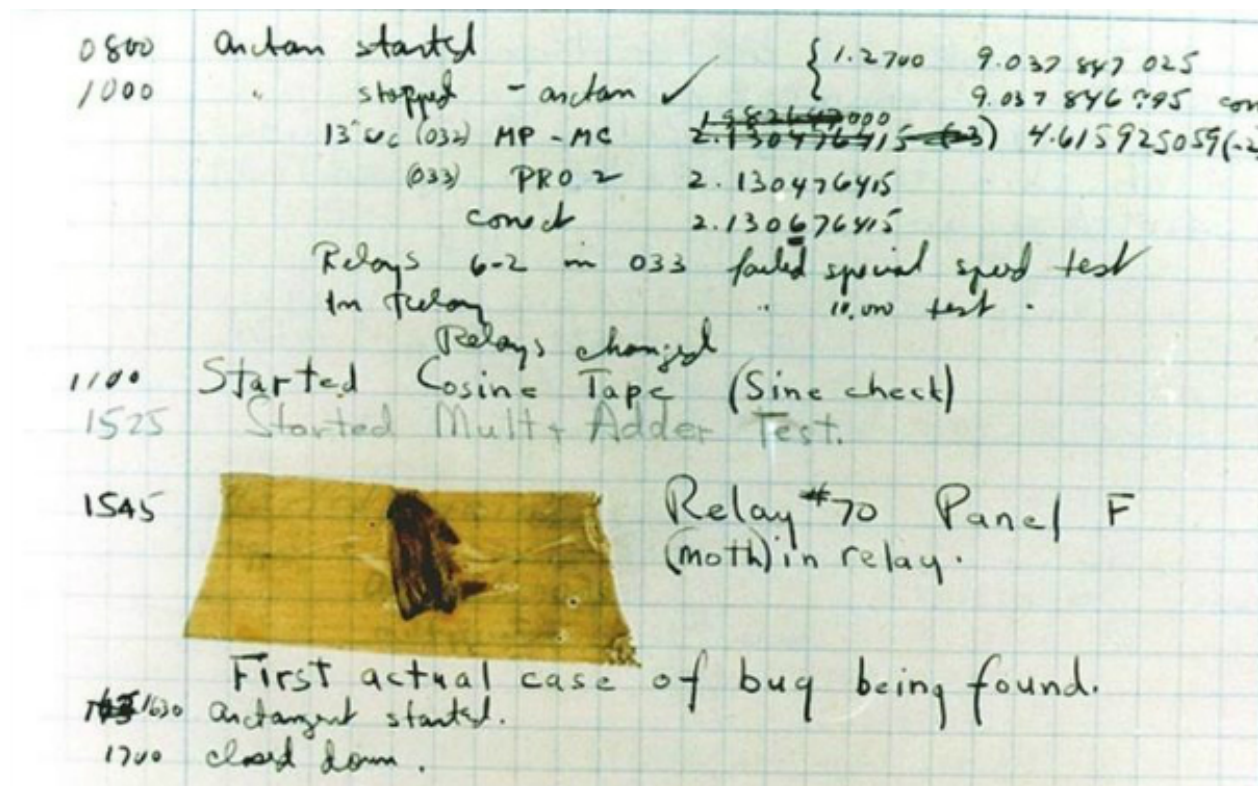 0800 arctan started { 1.2700 9.037 847 025
1000 " stopped - arctan ✓ 9.037 846 795 con
13"uc (032) MP - MC 2.130476415 (-3) 4.615925059(-2
(033) PRO 2 2.130476415
conect 2.130676415
Relays 6-2 in 033 failed special speed test
In Relay " 10,000 test .
Relays changed
1100 Started Cosine Tape (Sine check)
1525 Started Mult + Adder Test.
1545 Relay #70 Panel F
(moth) in relay.
First actual case of bug being found.
1630 arctangent started.
1700 closed down .